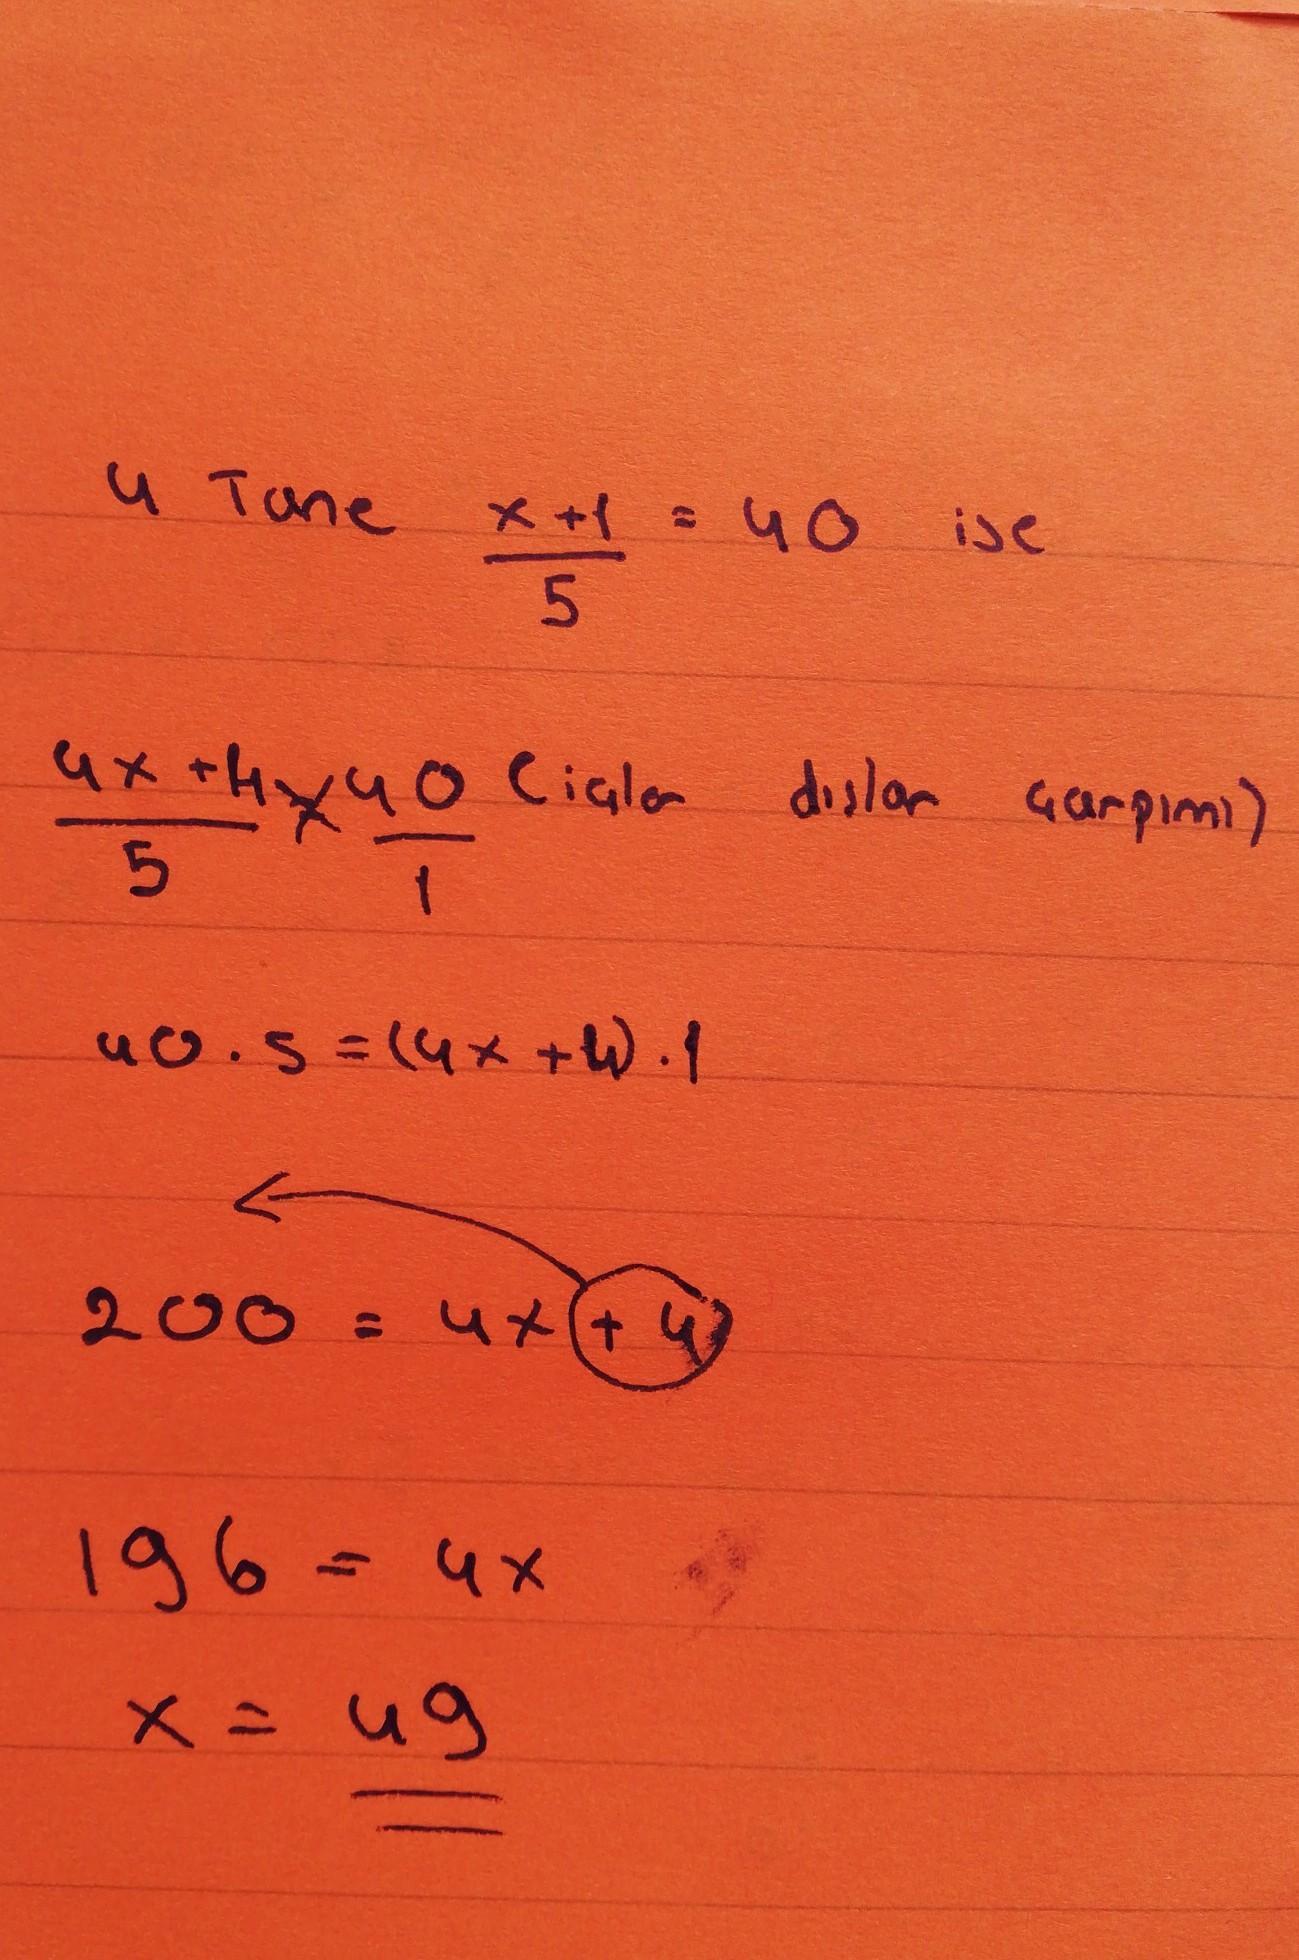 4 Tane x+1/5 = 40 ise
4x+4/5 x 40/1 (içler dışlar çarpımı)
40.5=(4x+4).1
200 = 4x+4
196 = 4x
x = 49